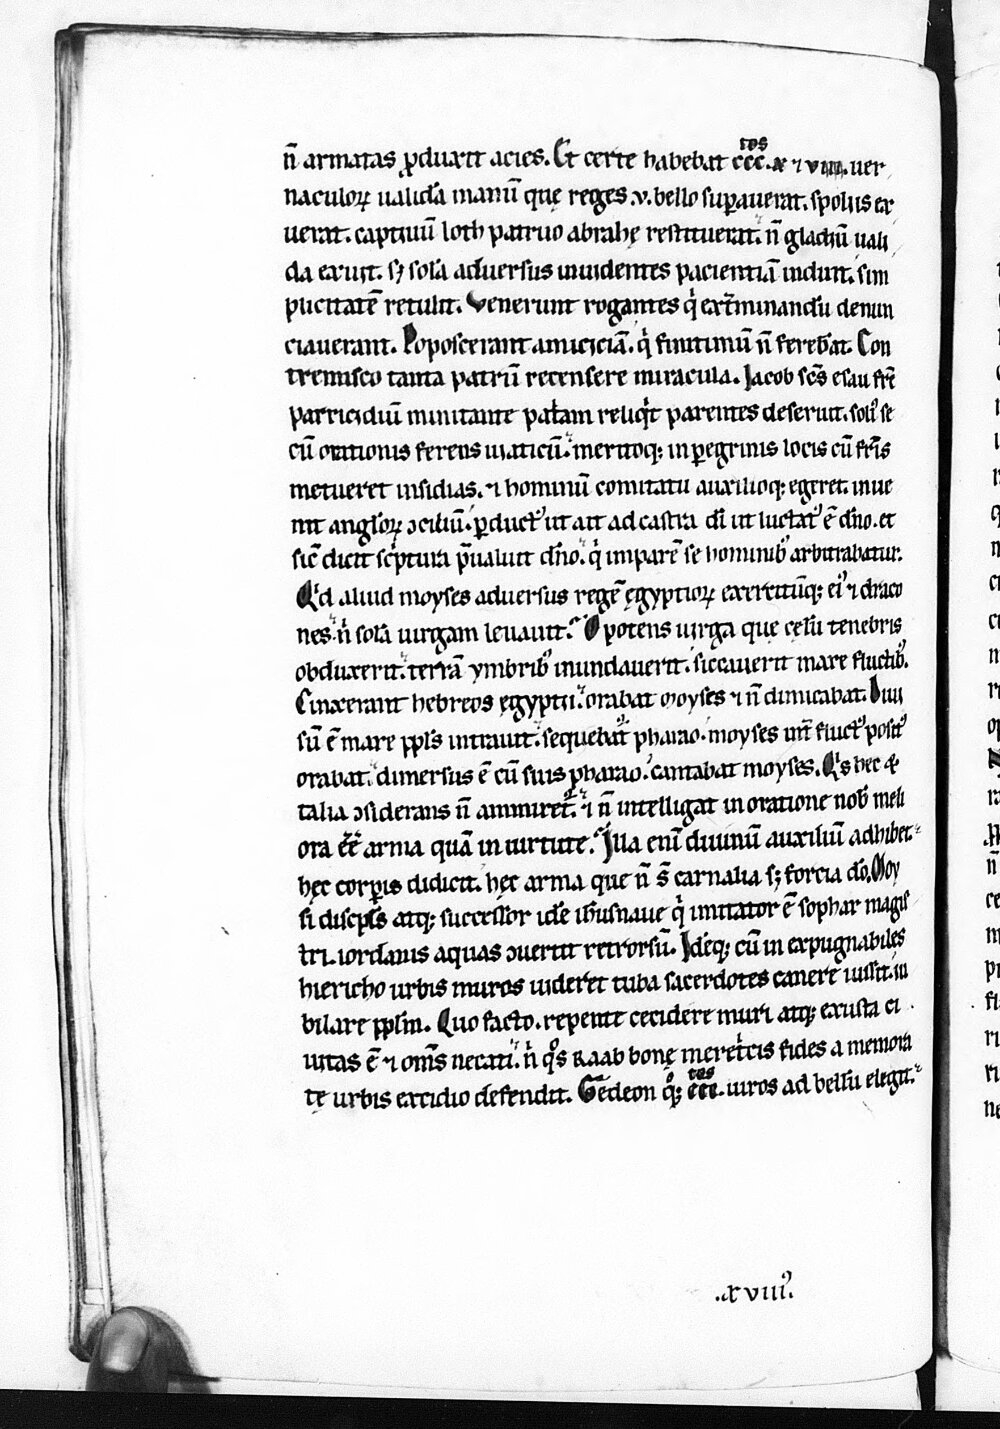 n̄ armatas ꝓduxit acies. Et certe habebat ccc.tos x ⁊ viii. uer
naculoꝝ ualidā manū quę reges .v. bello suꝑauerat. spoliis ex
uerat. captiuū loth patruo abrahę restituerat. n̄ gladiū uali
da exuit. sꝫ solā aduersus inuidentes pacientiā induit. sim
plicitatē retulit. Venerunt rogantes q̇ ext̄minandū denun
ciauerant. Poposcerant amiciciā. q̇ finitimū n̄ ferebāt. Con
tremisco tanta patrū recensere miracula. Iacob sc̄s esau fr̄e
parricidiū minitante paťnam reliq̇t parentes deseruit. solꝰ se
cū orationis ferens uiaticū. meritoqꝫ in ꝑegrinis locis cū fr̄is
metueret insidias. ⁊ hominū comitatu auxilioqꝫ egeret. inue
nit angl̄oꝝ ↄciliū. ꝑductꝰ ut ait ad castra dī ut luctatꝰ ē dn̄o. et
sic̄ dicit sċptura p̄ualuit dn̄o. q̇ imparē se hominibꝰ arbitrabatur.
Qͥd aliud moyses aduersus regē ęgyptioꝝ exercitūqꝫ eiꝰ ⁊ draco
nes. n̊ solā uirgam leuauit. O potens uirga que celū tenebris
obduxerit. terrā ymbribꝰ inundauerit. siccauerit mare fluctibꝰ.
Cinxerant hebreos ęgyptii. orabat moyses ⁊ n̄ dimicabat. Diui
sū ē mare ppl̄s intrauit. sequebať pharao. moyses int̄ fluctꝰ positꝰ
orabat. dimersus ē cū suis pharao. cantabat moyses. Qͥs hec &
talia ↄsiderans n̄ ammireť. ⁊ n̄ intelligat in oratione nob̄ meli
ora eē arma quā in uirtute. Illa enī diuinū auxiliū adhibet.
hęc corꝑis didicit. hęc arma que n̄ s̄ carnalia sꝫ forcia dō. Moy
si discipl̄s atqꝫ successor idē ih̄usnaue q̇ imitator ē sophar magis
tri. iordanis aquas ↄuertit retrorsū. Idēqꝫ cū inexpugnabiles
hiericho urbis muros uideret tuba sacerdotes canere iussit. iu
bilare ppl̄m. Quo facto. repente cecidere muri atqꝫ exusta ci
uitas ē ⁊ om̄s necati. n̊ qͦs Raab bonę meret̊cis fides a memora
tę urbis excidio defendit. Gedeon qͦqꝫ ccc.tos uiros ad bellū elegit.
.xviiiꝰ.